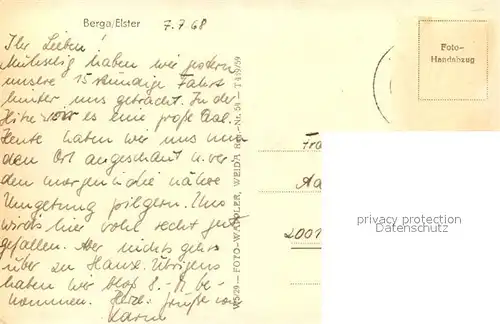 Berga/Elster 7.7.68
Ihr Lieben!
Mühselig haben wir gestern
unsere 15stündige Fahrt
hinter uns gebracht. In der
Hitze war es eine große Qual.
Heute haben wir uns nun
den Ort angeschaut u. wer-
den morgen in die nähere
Umgebung pilgern. Uns
wirds hier wohl recht gut
gefallen. Aber nichts geht
über zu Hause. Übrigens
haben wir bloß 8.- M be-
kommen. Herzl. Grüße von
Karin
V/5/29 — FOTO-WADDLER, WEIDA Reg.-Nr. 54 — T 449/59
Foto-
Handabzug
Fra
Aa
2001
privacy protection
Datenschutz